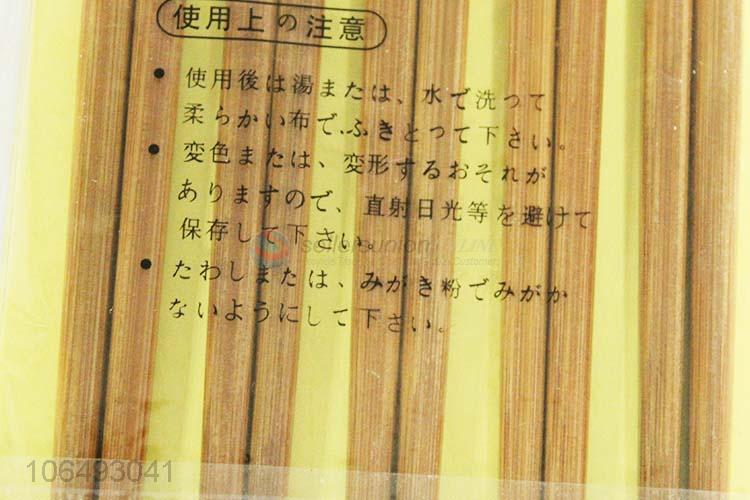 使用上の注意
• 使用後は湯または、水で洗つて
柔らかい布で、ふきとつて下さい。
• 変色または、変形するおそれが
ありますので、直射日光等を避けて
保存して下さい。
sellersunion
• たわしまたは、みがき粉でみがか
ないようにして下さい。
106493041